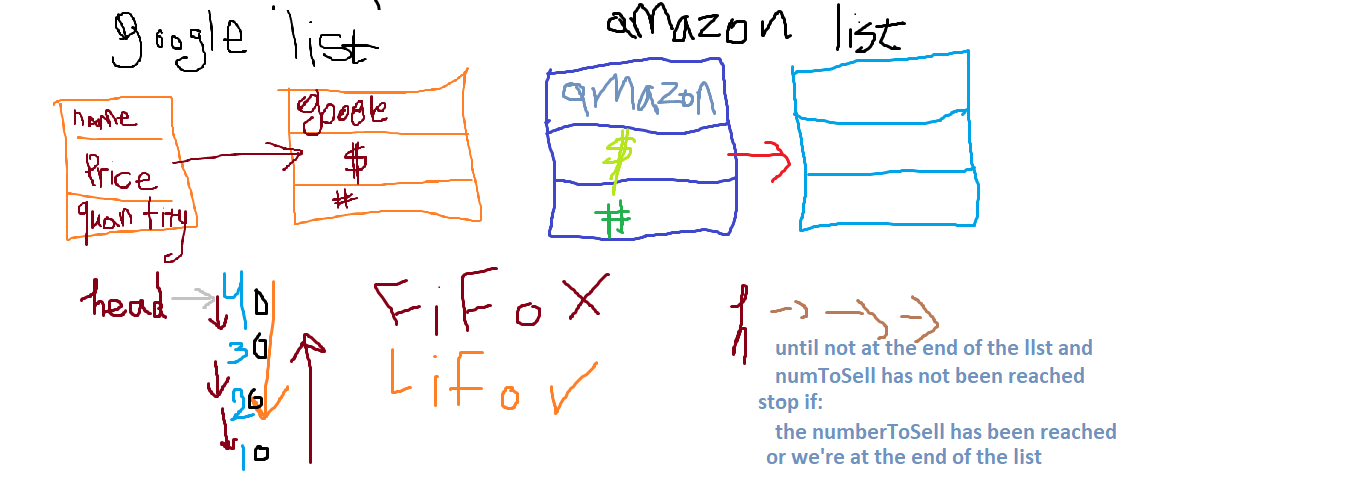 google 'list'
amazon list
name
Price
quantity
google
$
#
amazon
$
#
head
40
30
20
10
FiFo X
LiFo ✓
until not at the end of the lIst and
numToSell has not been reached
stop if:
the numberToSell has been reached
or we're at the end of the list